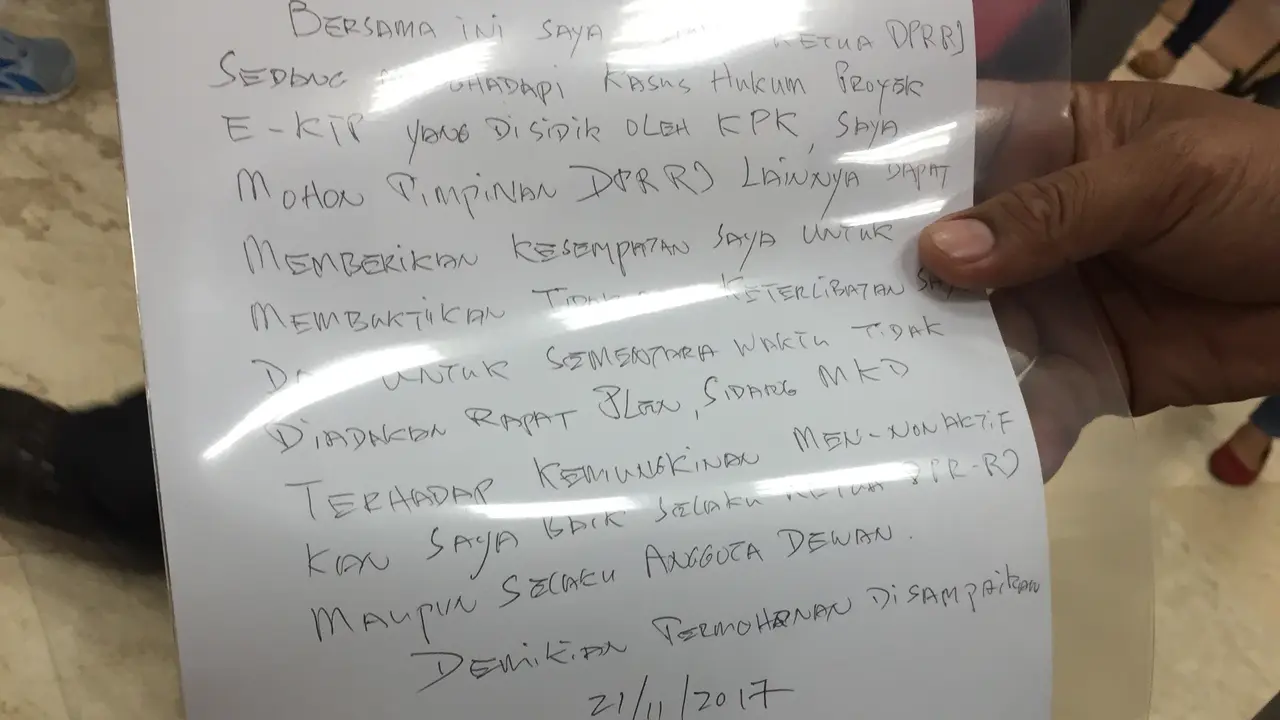 BERSAMA INI SAYA KETUA DPR RI
SEDANG KASUS HUKUM PROYEK
E-KTP YANG DISIDIK OLEH KPK, SAYA
MOHON PIMPINAN DPR RI LAINNYA DAPAT
MEMBERIKAN KESEMPATAN SAYA UNTUK
MEMBUKTIKAN KETERLIBATAN
UNTUK SEMENTARA WAKTU TIDAK
DIADAKAN RAPAT PLENO, SIDANG MKD
TERHADAP KEMUNGKINAN MEN-NONAKTIF
KAN SAYA BAIK SELAKU KETUA DPR-RI
MAUPUN SELAKU ANGGOTA DEWAN.
DEMIKIAN PERMOHONAN DISAMPAIKAN
21/11/2017